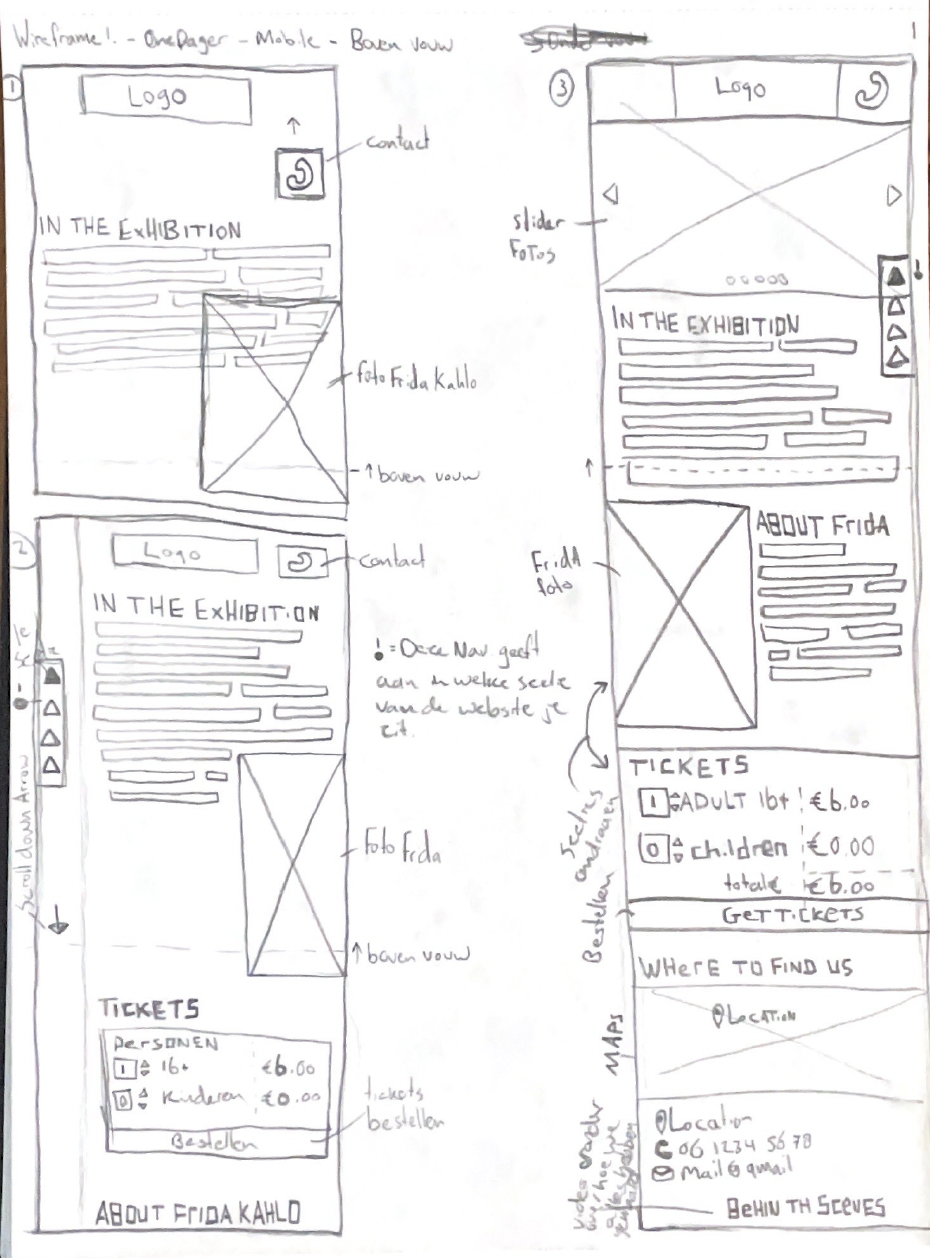 Wireframe! - OnePager - Mobile - Boven vouw
1
1
Logo
contact
IN THE ExHIBITION
foto Frida Kahlo
↑ boven vouw
2
Logo
contact
IN THE ExHIBITION
! = Deze Nav geeft
aan in welke sectie
van de website je
zit.
Scroll down Arrow
Foto Frida
↑ boven vouw
TICKETS
PERSONEN
1 16+ €6.00
0 Kinderen €0.00
Bestellen
tickets
bestellen
ABOUT FRIDA KAHLO
3
Logo
slider
FOTOS
!
IN THE EXHIBITION
FridA
foto
ABOUT FridA
Secties
omdraaien
TICKETS
1 ADULT 16+ €6.00
0 children €0.00
totale €6.00
GET TICKETS
Bestellen
WHERE TO FIND US
LOCATION
MAPS
Location
06 1234 56 78
Mail@qmail
BEHIN TH SCEVES
video